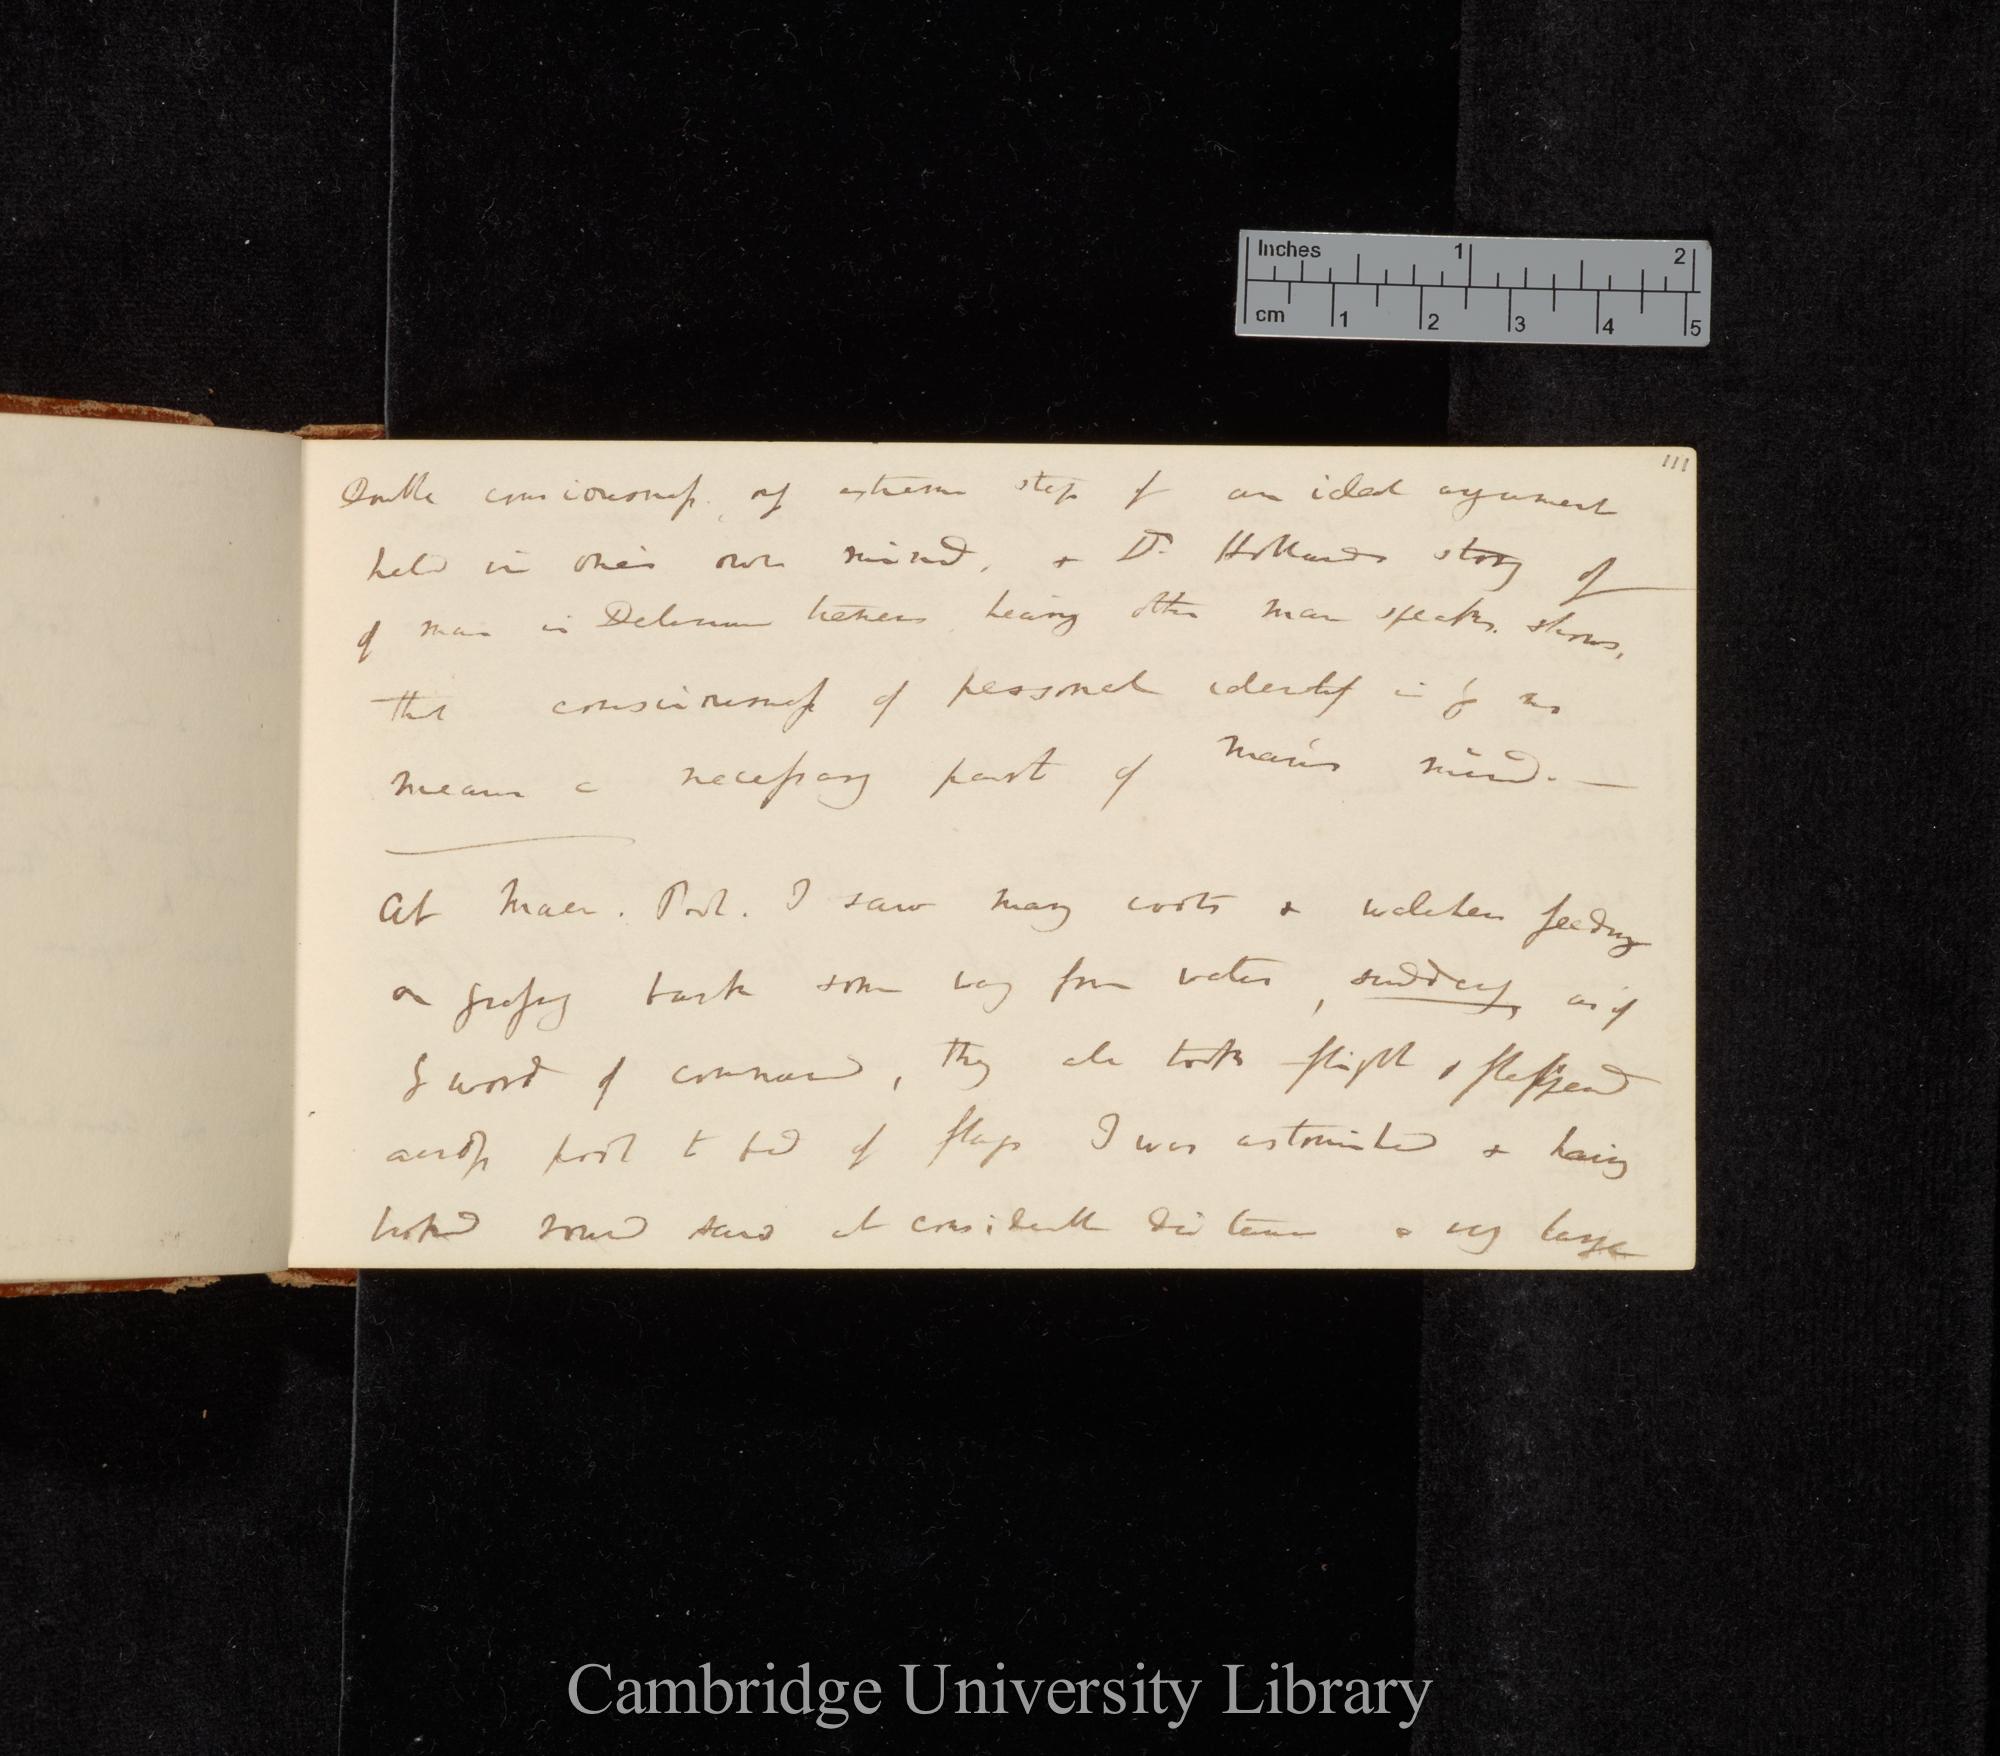 Inches 1 2
cm 1 2 3 4 5
111
Double consciousness only extreme step of an ideal argument
held in one's own mind, & Dr Hollands story of
of man in Delirium tremens hearing other man speaks, shows,
that consciousness of personal identity is by no
means a necessary part of man's mind. —
At Maer. Pool. I saw many coots & waterhens feeding
on grassy bank some way from water, suddenly, as if
by word of command, they all took flight & flapped
across pool to bed of flags I was astonished & having
looked round saw at considerable distance a very large
Cambridge University Library